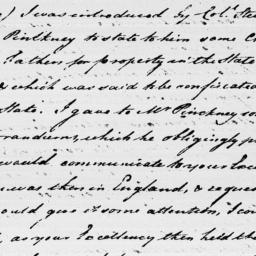 ) I was introduced by Col.^l
Pinckney to state to him some
Father for property in the State
& which was said to be confiscated
State. I gave to M^r Pinckney so
randum, which he obligingly p
would communicate to your
was then in England, & reques
ould give it some attention, I con
, as your Excellency then held the